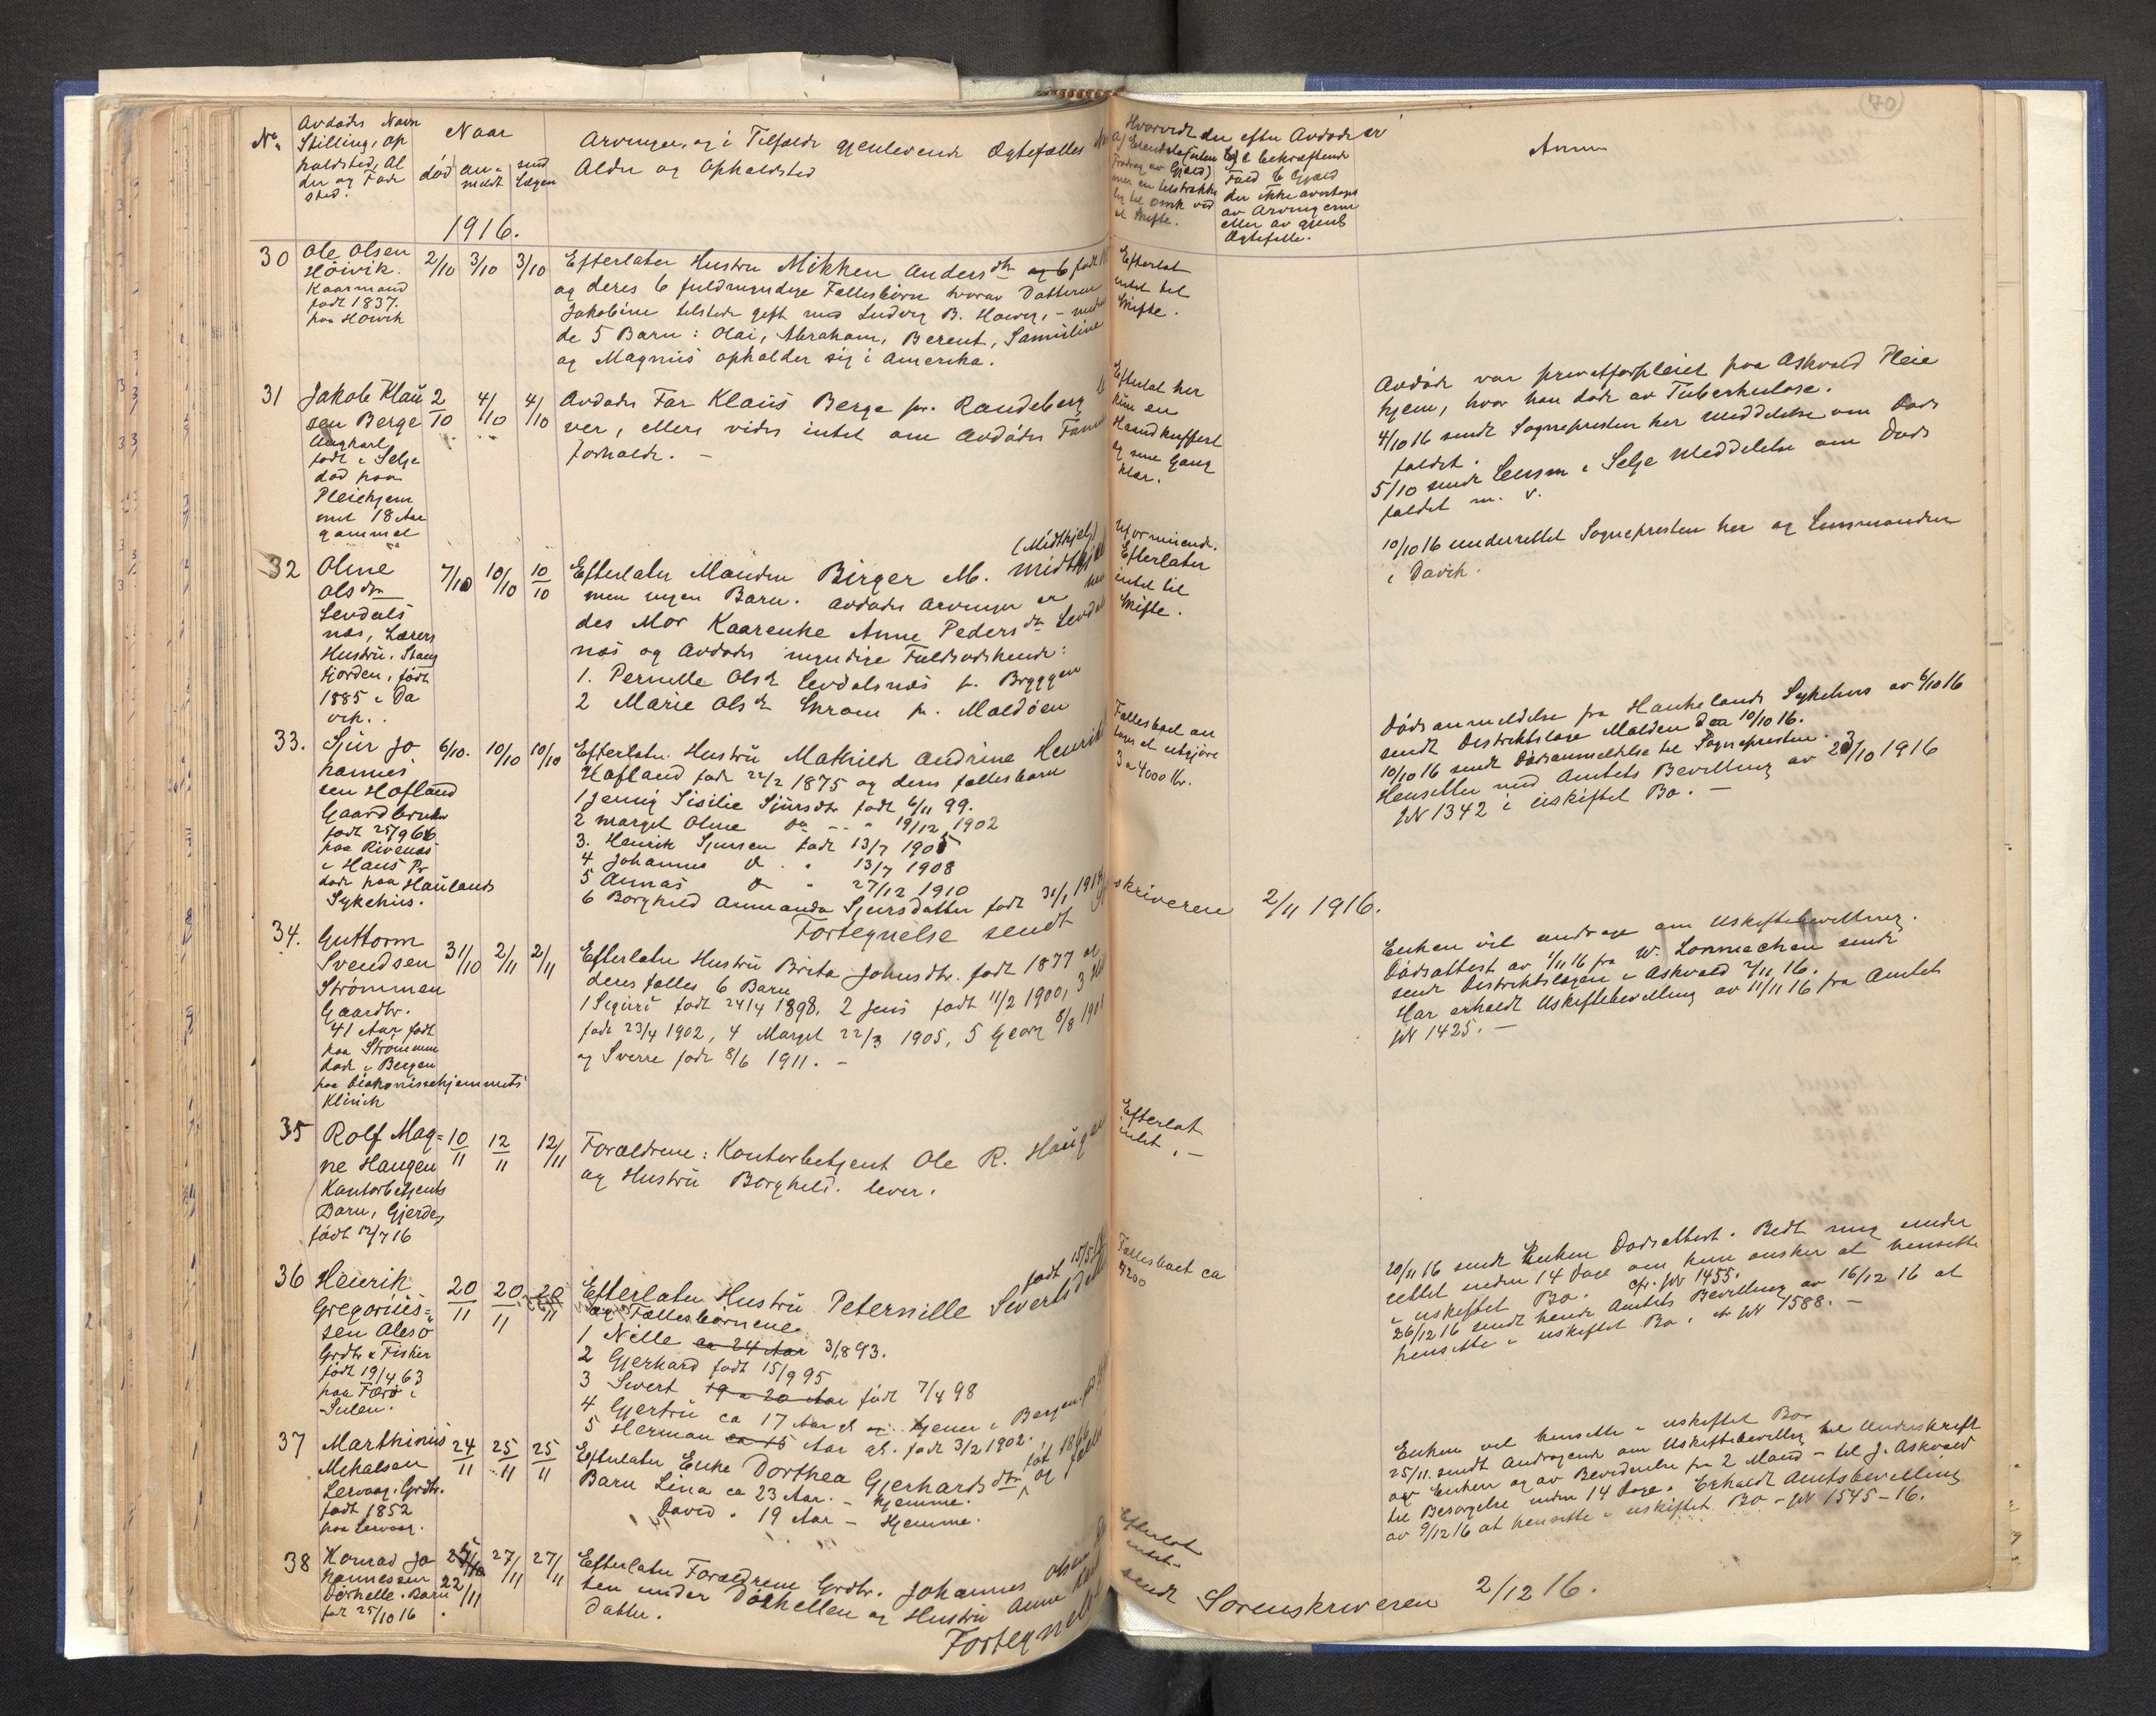 (70)
No
Avdødes Navn
Stilling, op
holdsted, Al
der og Føde
sted.
Naar
død
an-
meldt
send
Lægen
Arvinger, og i Tilfælde gjenlevende Ægtefælles
Alder og Opholdssted
Hvorvidt der efter Avdøde er
mer en tilstrække
lig til omk ved
et Skifte.
der ikke overtages
av Arvingerne
eller av gjenl
Ægtefælle.
Anm
1916.
30
Ole Olsen
Høivik.
Kaarmand
født 1837.
paa Høivik
2/10
3/10
3/10
Efterlater Hustru Mikken Andersdtr og 6 født
og deres 6 fuldmyndige Fællesbørn hvorav Datteren
Jakobine tilstede gift med Ludvig B.
de 5 Barn: Olai, Abraham, Berent, Samuline
og Magnus opholder sig i Amerika.
Efterlat
intet til
Skifte.
31
Jakob Klau
sen Berge
Ungkarl
født i Selje
død paa
Pleiehjem
met 18 Aar
gammel
2/10
4/10
4/10
Avdødes Far Klaus Berge pr. Raudeberg
ver, ellers vides intet om Avdødes
forholde. -
Efterlat her
kun en
Haandkuffert
og sine Gang
klær.
Avdøde var privatforpleiet paa Askvold Pleie
hjem, hvor han døde av Tuberkulose.
4/10 16 sendt Sognepresten her Meddelelse om Døds
faldet.
5/10 sendt Lensm i Selje Meddelelse om Døds
faldet m. v.
32
Oline
Olsdtr
Levdals
næs, Lærers
Hustru, Stang
fjorden, født
1885 i Da
vik.
7/10
10/10
10/10
(Midthjel)
Efterlater Manden Birger M.
men ingen Barn. Avdødes Arvinger er
des Mor Kaarenke Anne Pedersdtr
næs og Avdødes myndige Fuldsødskende:
1. Pernille Olsdtr Levdalsnæs pr. Bryggen
2 Marie Olsdtr Skram pr. Maldøen
Efterlater
intet til
Skifte.
10/10 16 underrettet Sognepresten her og Lensmanden
i Davik.
33.
Sjur Jo
hannes
sen Hofland
Gaardbruker
født 25/9 66
paa Rivenæs
i Haus Pr
døde paa Haukelands
Sykehus.
6/10.
10/10
10/10
Efterlater Hustru Mathilde Andrine
Hofland født 22/2 1875 og deres fællesbarn
1 Jenny Sisilie Sjursdtr født 6/11 99.
2 Margit Oline do - - " 19/12 1902
3. Henrik Sjursen født 13/7 1905
4 Johanna do " 13/7 1908
5 Annas do " 27/12 1910
6 Borghild Ammanda Sjursdatter født
Fællesboet an
tages at utgjøre
3 a 4000 Kr.
Dødsanmeldelse fra Haukelands Sykehus av 6/10 16
sendt Distriktslæge Malden den 10/10 16.
10/10 16 sendt Dødsanmeldelse til Sognepresten.
Hensitter med Amtets Bevilling av 23/10 1916
JN 1342 i uskiftet Bo. -
Fortegnelse sendt
skriveren 2/11 1916.
34.
Guttorm
Svendsen
Strømmen
Gaardbr.
41 Aar født
paa Strømmen
døde i Bergen
paa Diakonissehjemmets
Klinik
31/10
2/11
2/11
Efterlater Hustru Brita Johnsdtr. født 1877 og
deres fælles 6 Barn
1 Sigurd født 24/4 1898. 2 Jens født 11/2 1900, 3
født 23/4 1902, 4 Margit 22/3 1905, 5 Georg 8/8
og Sverre født 8/6 1911. -
Enken vil andrage om Uskiftebevilling.
Dødsattest av 1/11 16 fra W. Lonmachen sendt
sendt Distriktslægen i Askvold 2/11 16.
Har erholdt Uskiftebevilling av 11/11 16 fra Amtet
JN 1425. -
35
Rolf Mag-
ne Haugen
Kontorbetjents
Barn, Gjerde,
født 12/7 16
10/11
12/11
12/11
Forældrene: Kontorbetjent Ole R. Haugen
og Hustru Borghild. lever.
Efterlat
intet. -
36
Henrik
Gregorius-
sen Alesø
Grdbr & Fisker
født 19/4 63
paa Færø i
Sulen.
20/11
20/11
20/11
født 15/5
Efterlater Hustru Peternille
og Fællesbørnene.
1 Nille ca 24 Aar 3/8 93.
2 Gjerhard født 15/9 95
3 Sivert 19 a 20 Aar født 7/4 98
4 Gjertru ca 17 Aar gl. tjener i Bergen
5 Herman ca 15 Aar gl. født 3/2 1902.
Fællesboet ca
4200
20/11 16 sendt Enken Dødsattest. Bedt mig under
rettet inden 14 Dage om hun ønsker at hensitte
i uskiftet Bo. cfr. JN 1455.
26/12 16 sendt hende Amtets Bevilling av 16/12 16 at
hensitte i uskiftet Bo, cfr JN 1588. -
37
Marthinus
Mikalsen
Lervaag. Grdbr.
født 1852
paa Lervaag.
24/11
25/11
25/11
Efterlater Enke Dorthea Gjerhardsdtr og
Barn Lina ca 23 Aar. - Hjemme.
David " 19 Aar - Hjemme.
Enken vil hensitte i uskiftet Bo
25/11. sendt Andragende om Uskiftebevilling til Underskrift
av Enken og av Bevidnelse fra 2 Mand - til J. Askvold
til Besørgelse inden 14 Dage. Erholdt Amtsbevilling
av 9/12 16 at hensitte i uskiftet Bo - JN 1545-16.
38
Konrad Jo
hannessen
Dørhelle. Barn
født 25/10 16
22/11
27/11
27/11
Efterlater Forældrene Grdbr. Johannes Olsen
ten under Dørhellen og Hustru Anne
datter.
Efterlat
intet
Fortegnelse
sendt Sorenskriveren 2/12 16.